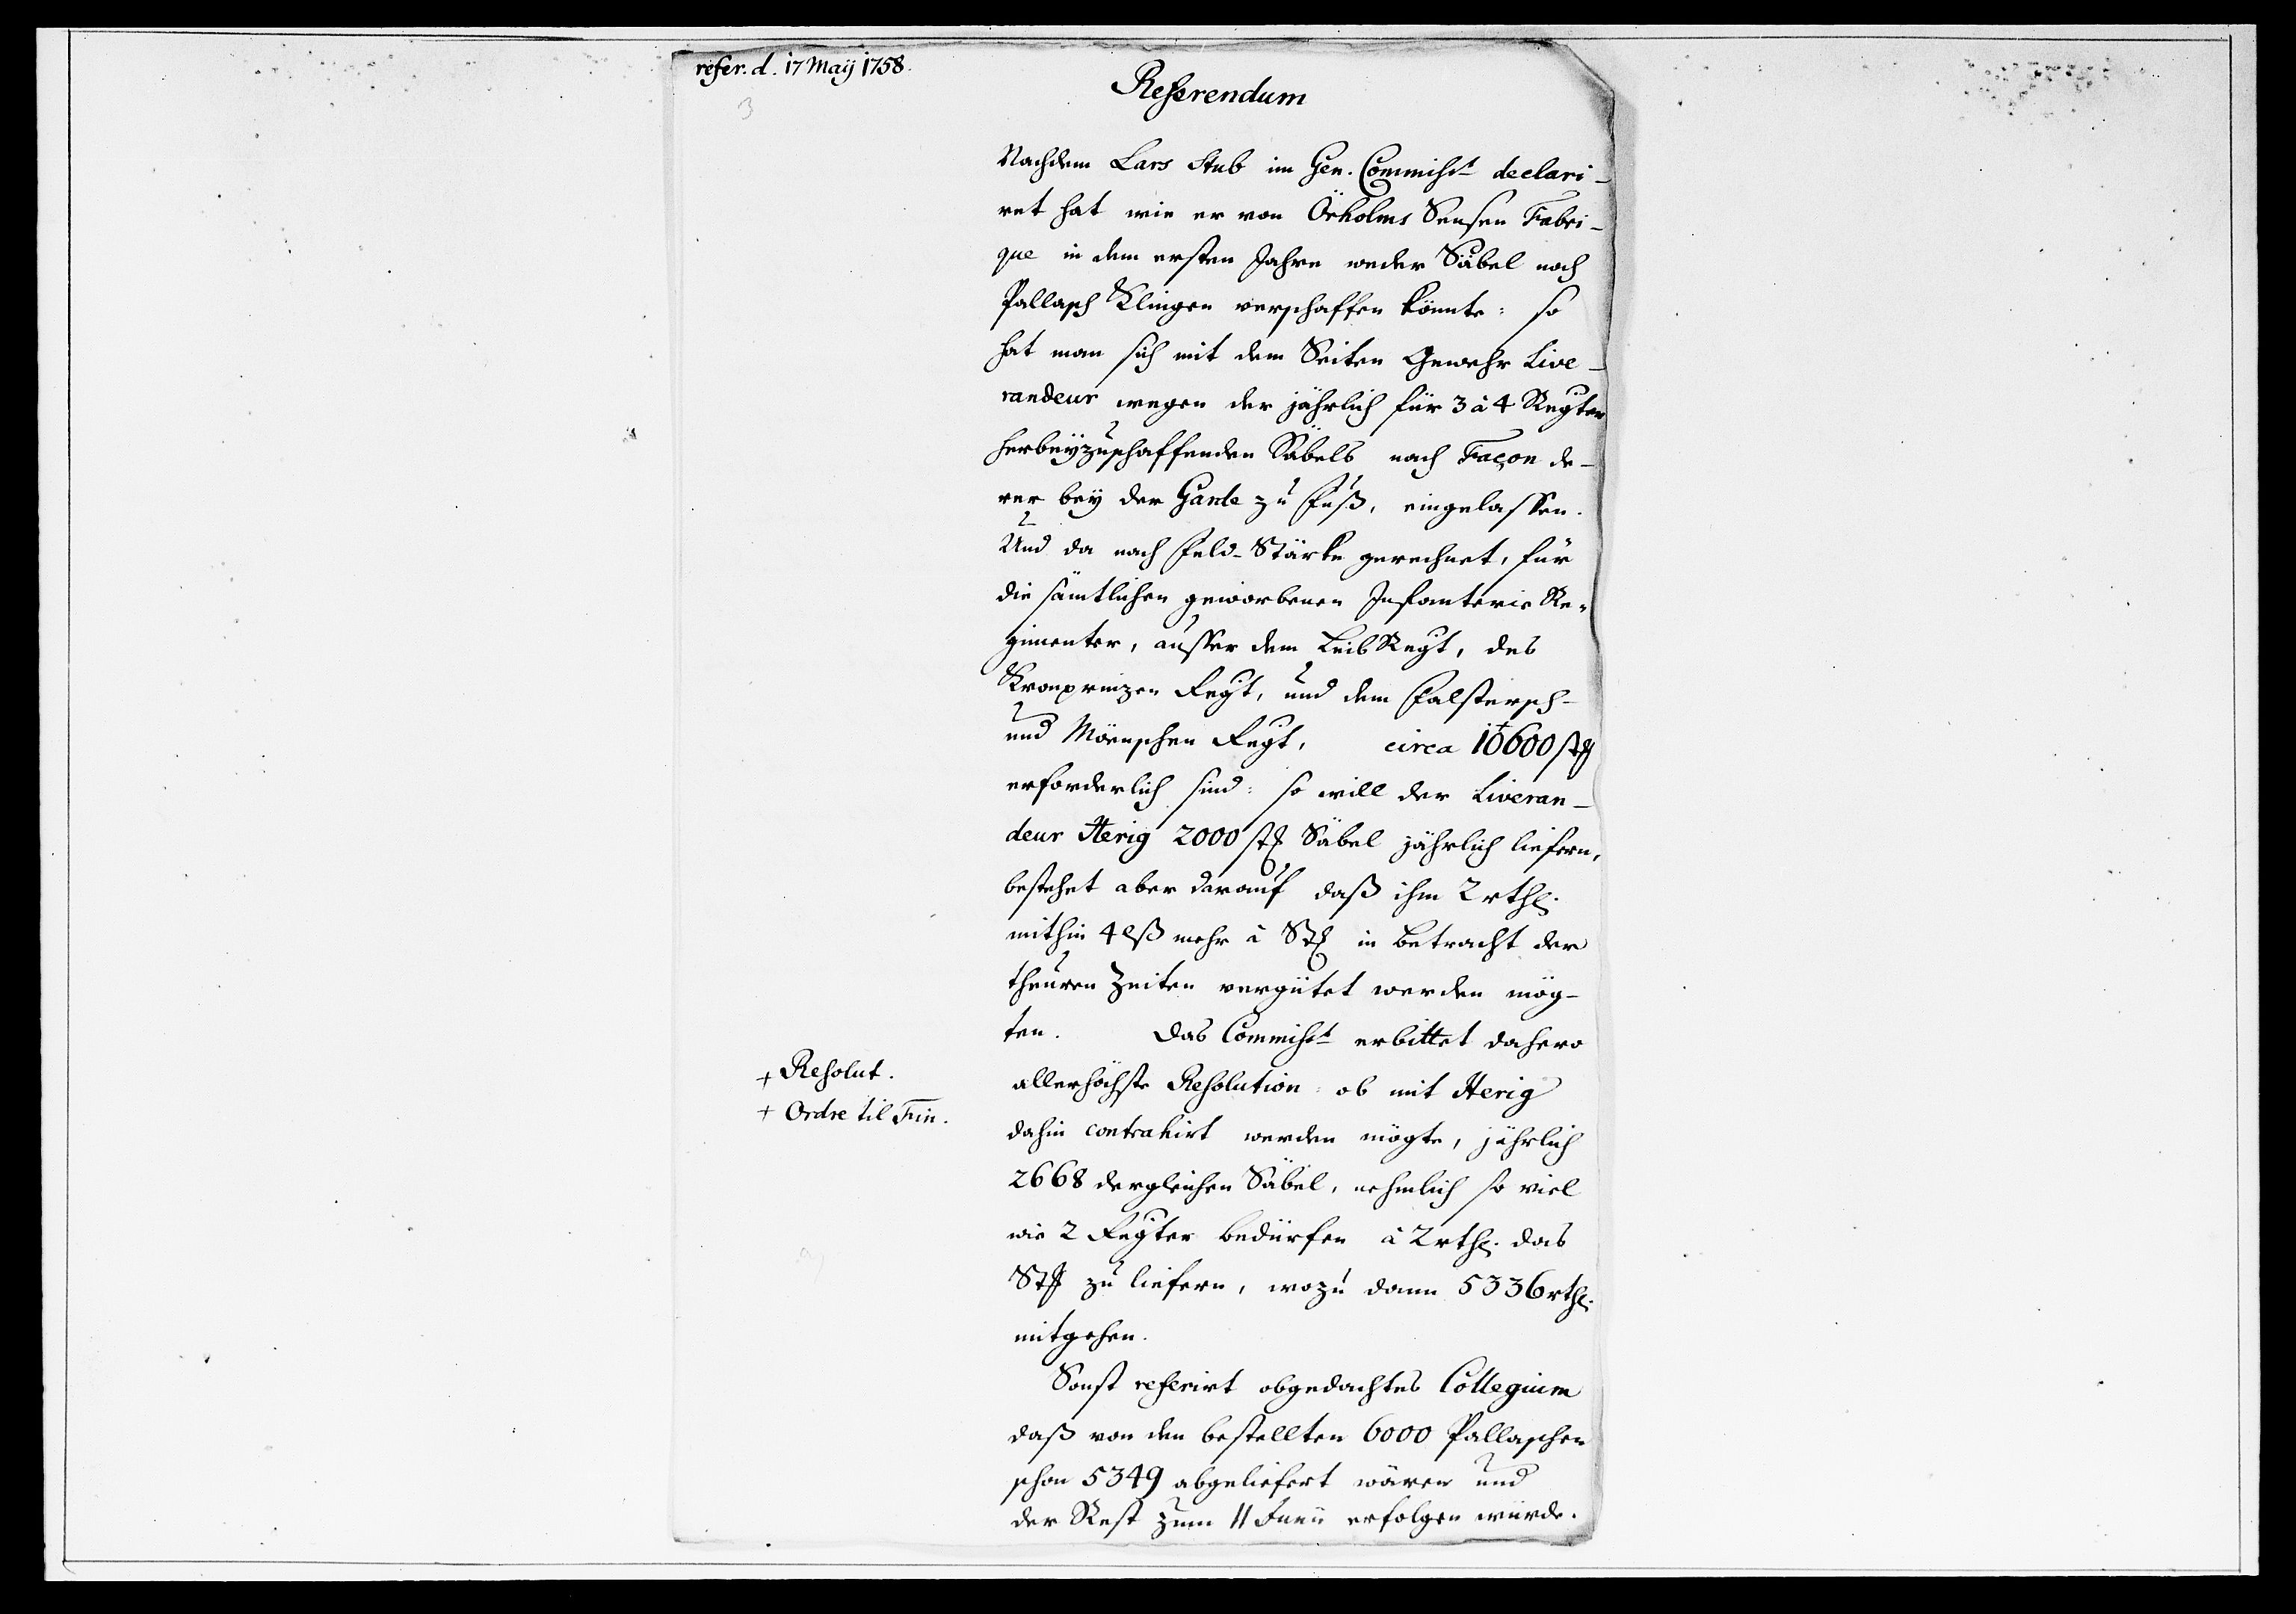 refer. d. 17 Maÿ 1758.
3
Referendum
Nachdem Lars Stub im Gen. Commiss<sup>t</sup> declari-
ret hat wie er von Örholms Sensen Fabri-
que in dem ersten Jahre weder Säbel noch
Pallasch Klingen verschaffen könnte: so
hat man sich mit dem Seiten Gewehr Live-
randeur wegen der jährlich für 3 à 4 Regter
herbeÿzuschaffenden Säbels nach Façon de-
rer beÿ der Garde zu Fuß, eingelassen.
Und da nach Feld-Stärke gerechnet, für
die sämtlichen geworbenen Infanterie Re-
gimenter, ausser dem Leib Regt, des
Kronprinzen Regt, und dem Falstersch-
und Möenschen Regt, circa 10600 stk
erforderlich sind: so will der Liveran-
deur Herig 2000 stk Säbel jährlich liefern,
bestehet aber darauf daß ihm 2 rthl.
mithin 4 lß mehr à Stk in Betracht der
theuren Zeiten vergütet werden mög-
ten. Das Commiss<sup>t</sup> erbittet dahero
allerhöchste Resolution: ob mit Herig
dahin contrahirt werden mögte, jährlich
2668 dergleichen Säbel, nehmlich so viel
wie 2 Regter bedürfen à 2 rthl. das
Stk zu liefern, wozu dann 5336 rthl.
mitgehen.
Sonst referirt obgedachtes Collegium
daß von den bestellten 6000 Pallaschen
schon 5349 abgeliefert wären und
der Rest zum 11 Junii erfolgen würde.
+ Resolut.
+ Ordre til Fin.